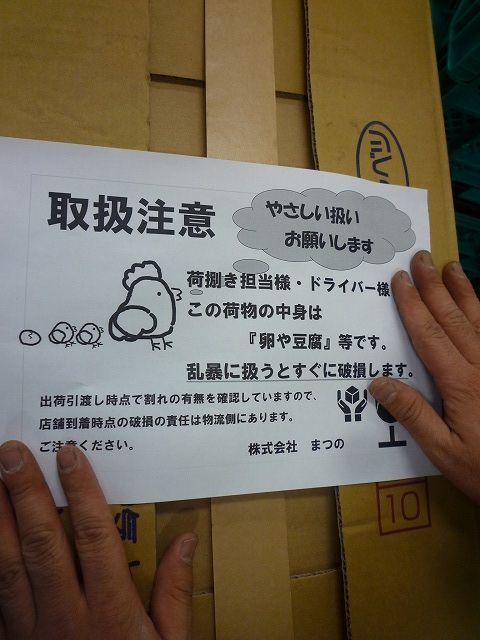 取扱注意
やさしい扱い
お願いします
荷捌き担当様・ドライバー様
この荷物の中身は
『卵や豆腐』等です。
乱暴に扱うとすぐに破損します。
出荷引渡し時点で割れの有無を確認していますので、
店舗到着時点の破損の責任は物流側にあります。
ご注意ください。
株式会社 まつの
10